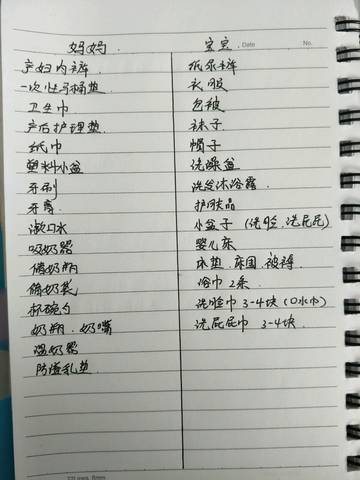 妈妈
产妇内裤
一次性马桶垫
卫生巾
产后护理垫
纸巾
塑料小盆
牙刷
牙膏
漱口水
吸奶器
储奶瓶
储奶袋
杯碗勺
奶瓶、奶嘴
温奶器
防溢乳垫
宝宝 Date No.
纸尿裤
衣服
包被
袜子
帽子
洗澡盆
洗发沐浴露
护肤品
小盆子(洗脸,洗屁屁)
婴儿床
床垫、床围、被褥
浴巾 2条
洗脸巾 3-4块(口水巾)
洗屁屁巾 3-4块